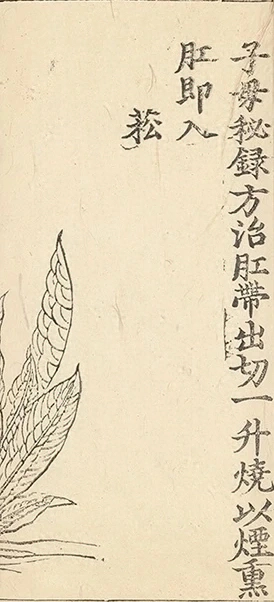 子母秘録方治肛帶出切一升燒以煙熏
肛即入
菘